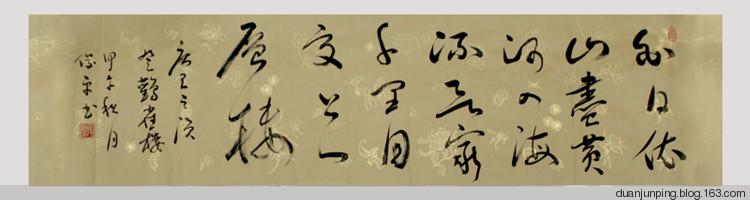 白日依
山盡黄
河入海
流欲窮
千里目
更上一
層樓
唐王之渙
登鸛雀樓
甲午秋月
俊平书
duanjunping.blog.163.com